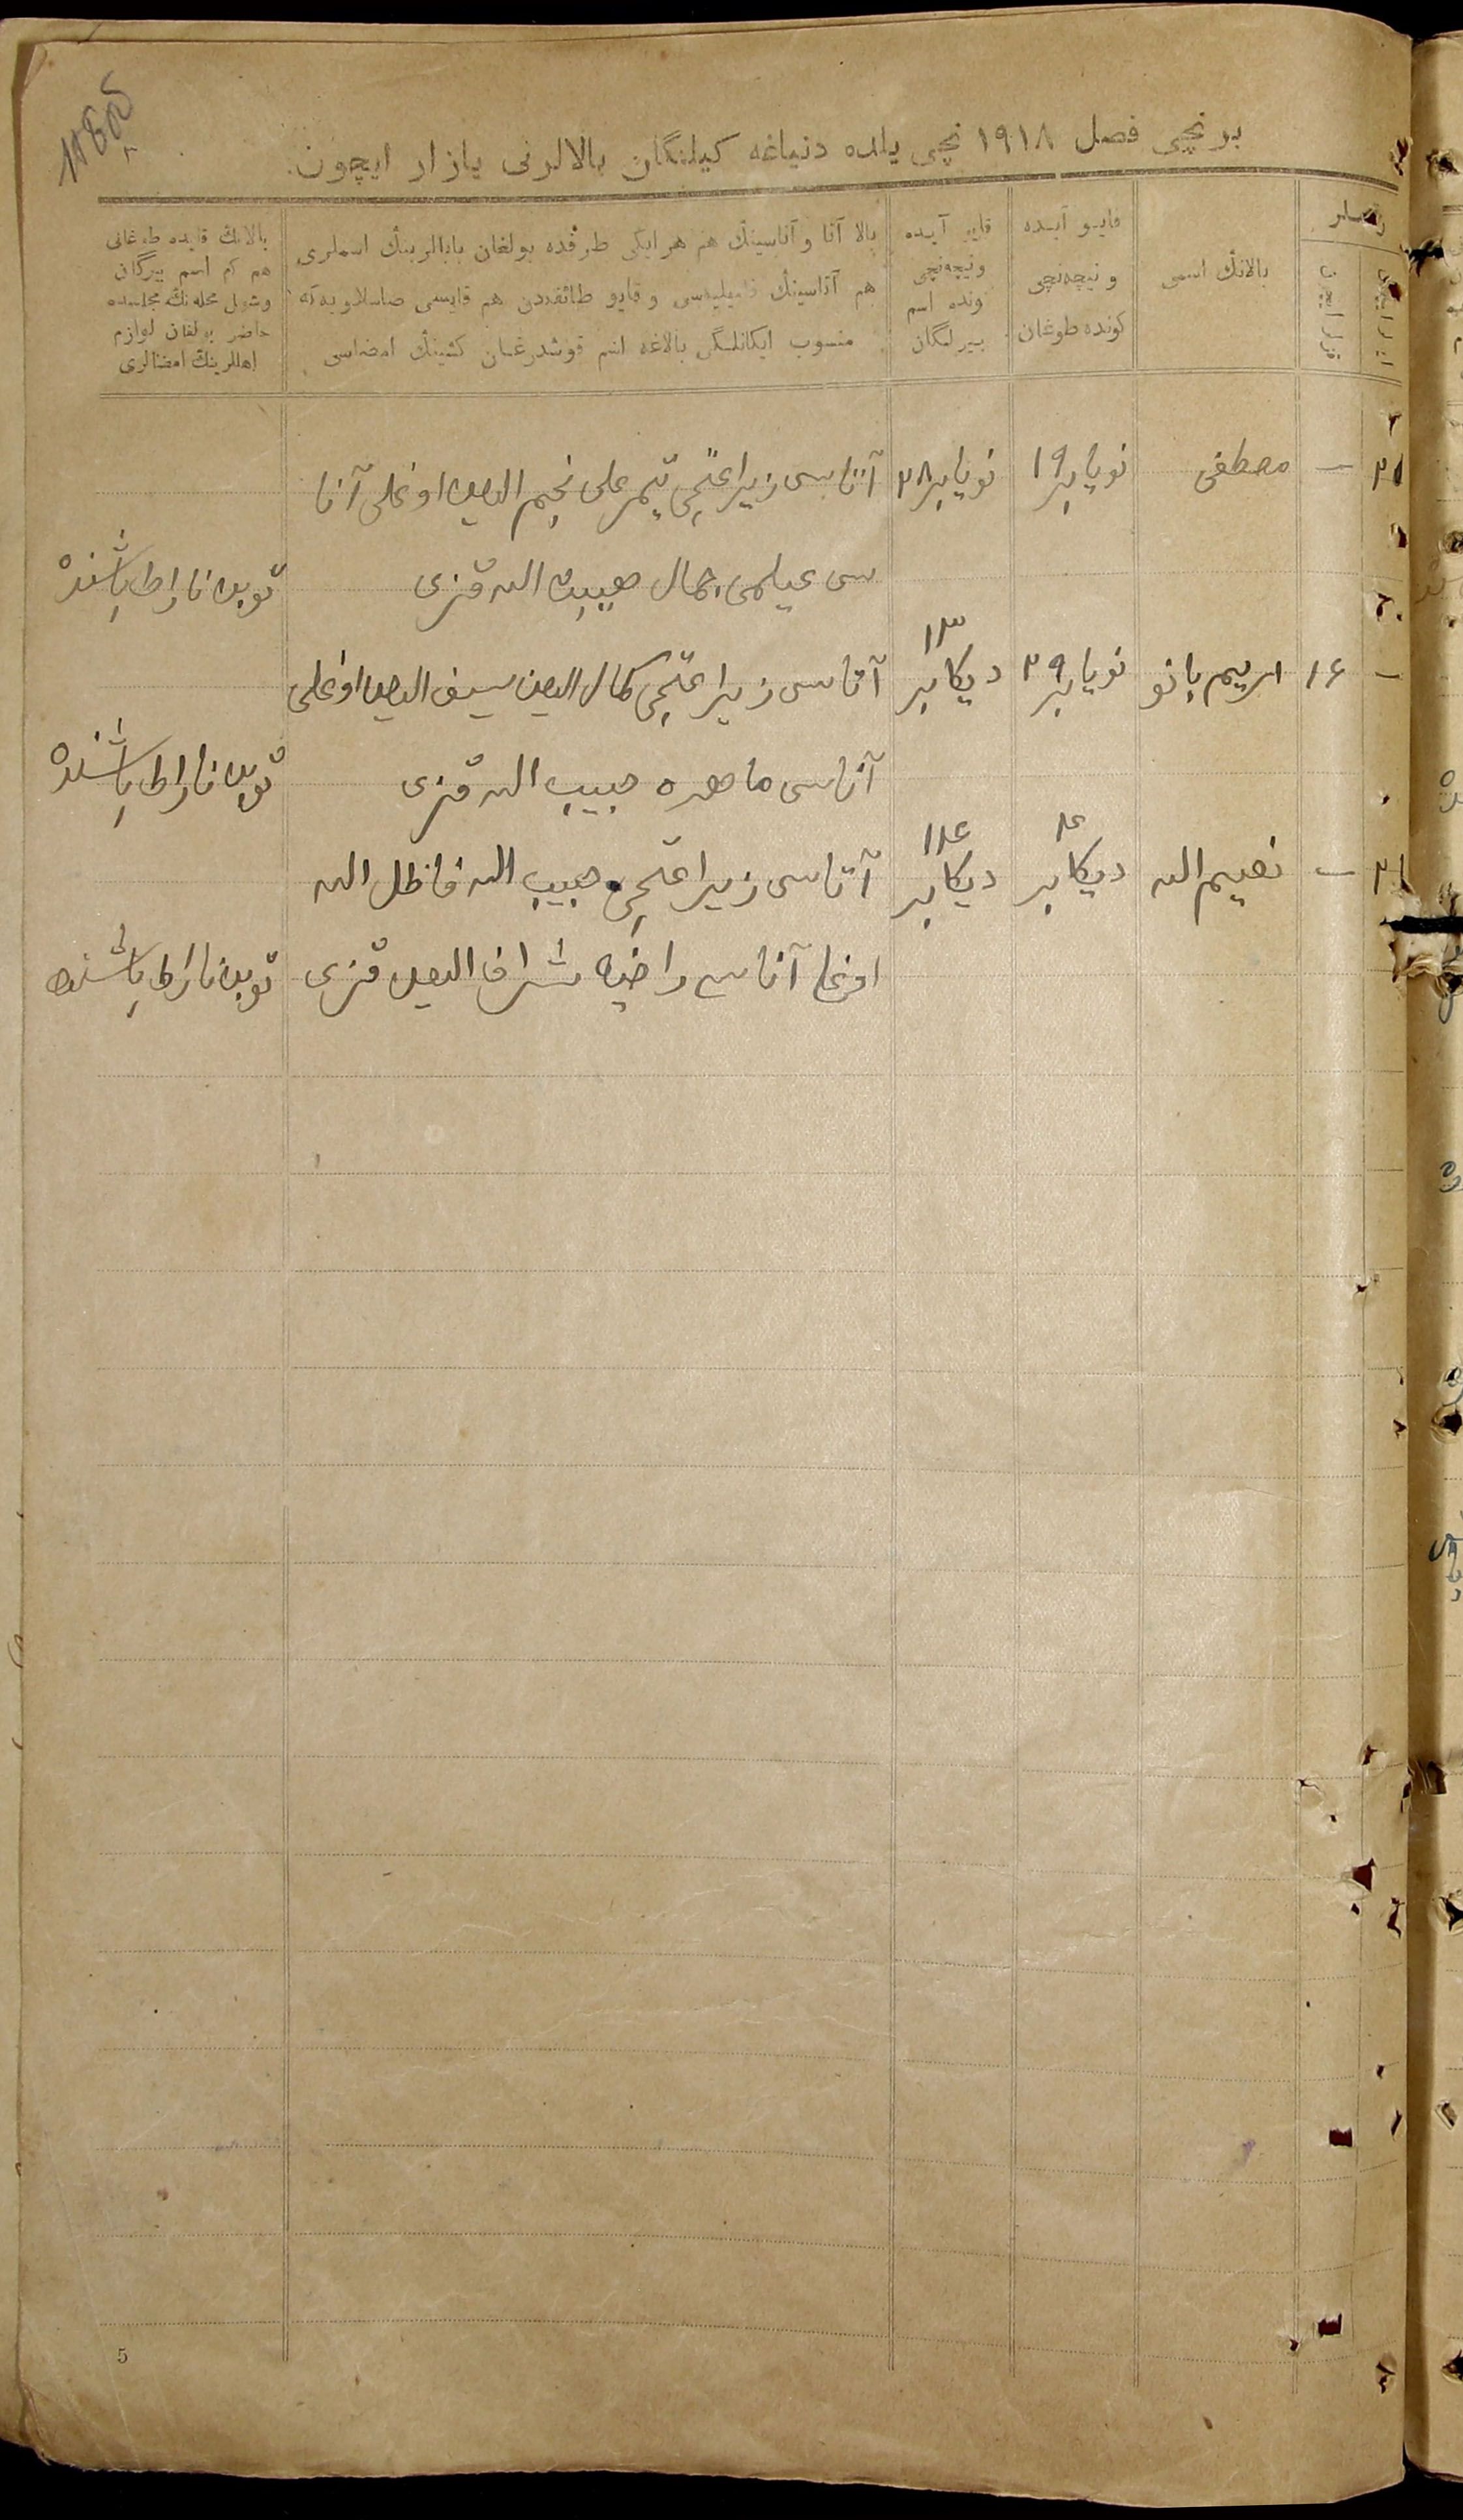 برنچی فصل ۱۹۱۸ نچی یلده دنیاغه کیلنگان بالالرنی یازار ایچون.
بالانڭ اسمی
قایو آیده
ونیچه‌نچی
کونده طوغان
قایو آیده
ونیچه‌نچی
کونده اسم
بیرلگان
بالا آتا و آناسینڭ هم هر ایکی طرفده بولغان بابالرینڭ اسملری
هم آتاسینڭ فامیلیه‌سی و قایو طائفه‌دن هم قایسی
منسوب ایکانلیگی بالاغه اسم قوشدرغان کشینڭ امضاسی
بالانڭ قایده طوغانی
هم کم اسم بیرگان
وشول محله‌نڭ مجلسده
حاضر بولغان لوازم
اهللرینڭ امضالری
۲۱ — مصطفی نویابر ۱۹ نویابر ۲۸ آتاسی زیراعتچی تیمرعلی نجیم الدین اوغلی آنا
سی عیلمی جمال حبیب الله قزی توبن ناراط باشنده
— ۱۶ مریم بانو نویابر ۲۹ دیکابر ۱۳ آتاسی زیراعتچی کمال الدین سیف الدین اوغلی
آناسی ماهره حبیب الله قزی توبن ناراط باشنده
— نعیم الله دیکابر دیکابر آتاسی زیراعتچی حبیب الله فاظل الله
اوغلی آناسی راضیه شراف الدین قزی توبن ناراط باشنده
5